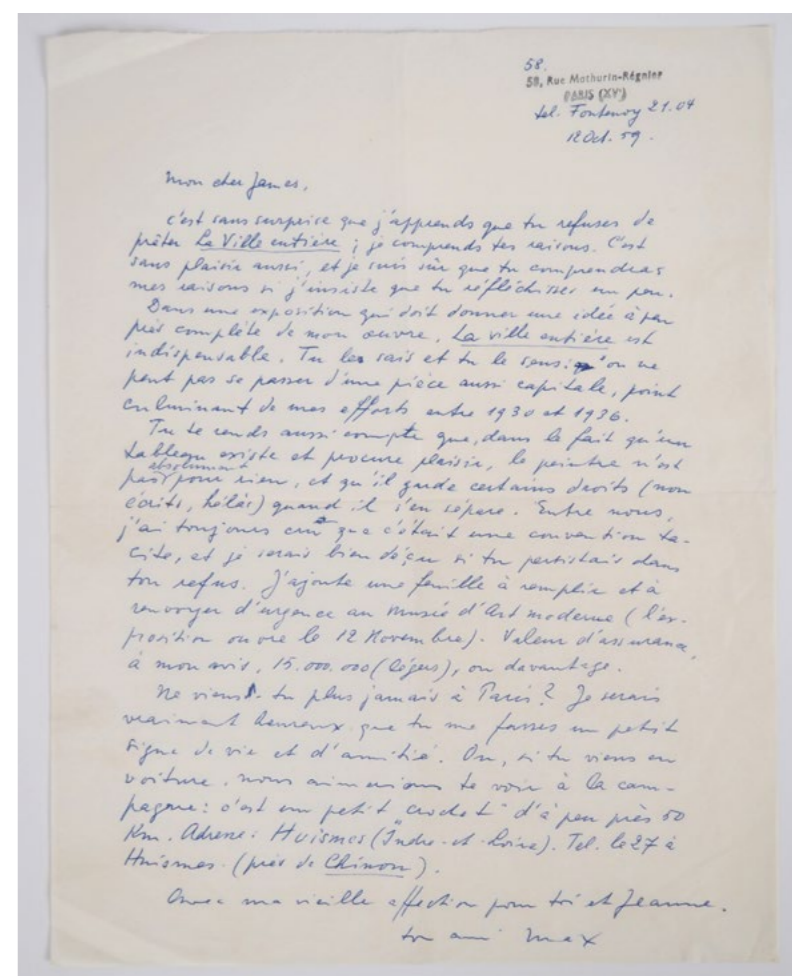 58.
58, Rue Mathurin-Régnier
PARIS (XVe)
tel. Fontenoy 21.04
12 Oct. 59.
Mon cher James,
c'est sans surprise que j'apprends que tu refuses de
prêter La Ville entière ; je comprends tes raisons. C'est
sans plaisir aussi, et je suis sûr que tu comprendras
mes raisons si j'insiste que tu réfléchisses un peu.
Dans une exposition qui doit donner une idée à peu
près complète de mon œuvre, La ville entière est
indispensable. Tu le sais et tu le sens: on ne
peut pas se passer d'une pièce aussi capitale, point
culminant de mes efforts entre 1930 et 1936.
Tu te rends aussi compte que, dans le fait qu'un
tableau existe et procure plaisir, le peintre n'est
absolument
pas pour rien, et qu'il garde certains droits (non
écrits, hélas) quand il s'en sépare. Entre nous,
j'ai toujours cru que c'était une convention ta-
cite, et je serais bien déçu si tu persistais dans
ton refus. J'ajoute une feuille à remplir et à
renvoyer d'urgence au Musée d'Art moderne (l'ex-
position ouvre le 12 Novembre). Valeur d'assurance,
à mon avis, 15.000.000 (légers), ou davantage.
Ne viens-tu plus jamais à Paris? Je serais
vraiment heureux que tu me fasses un petit
signe de vie et d'amitié. Ou, si tu viens en
voiture, nous aimerions te voir à la cam-
pagne: c'est un petit "crochet" d'à peu près 50
Km. Adresse: Huismes (Indre-et-Loire). Tel. le 27 à
Huismes. (près de Chinon).
Avec ma vieille affection pour toi et Jeanne.
ton ami Max